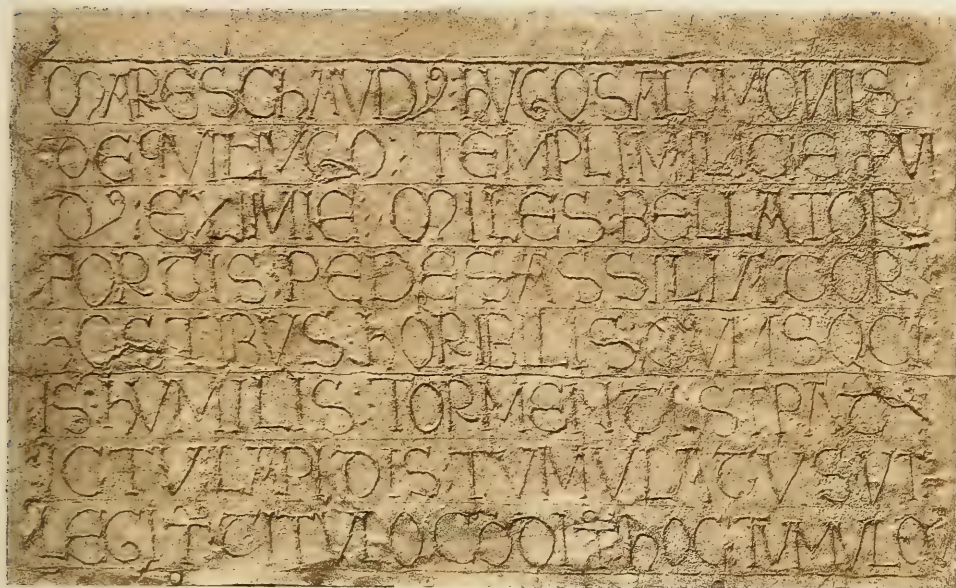 MARESCHAUD9 : hVGO SALOMONIS
DE QVILIVGO : TEMPLI MILICIE : PVI
D9 : EXIMIE : MILES BELLATOR
FORTIS PEDES ASSILIATOR
hOSTIBVS hORIBILIS CVM SOCI
IS hVMILIS TORMENTI STRATVS
ICTV LAPIDIS TVMVLATVS VT
LEGIT TITVLO CODIT hOC TVMVLO